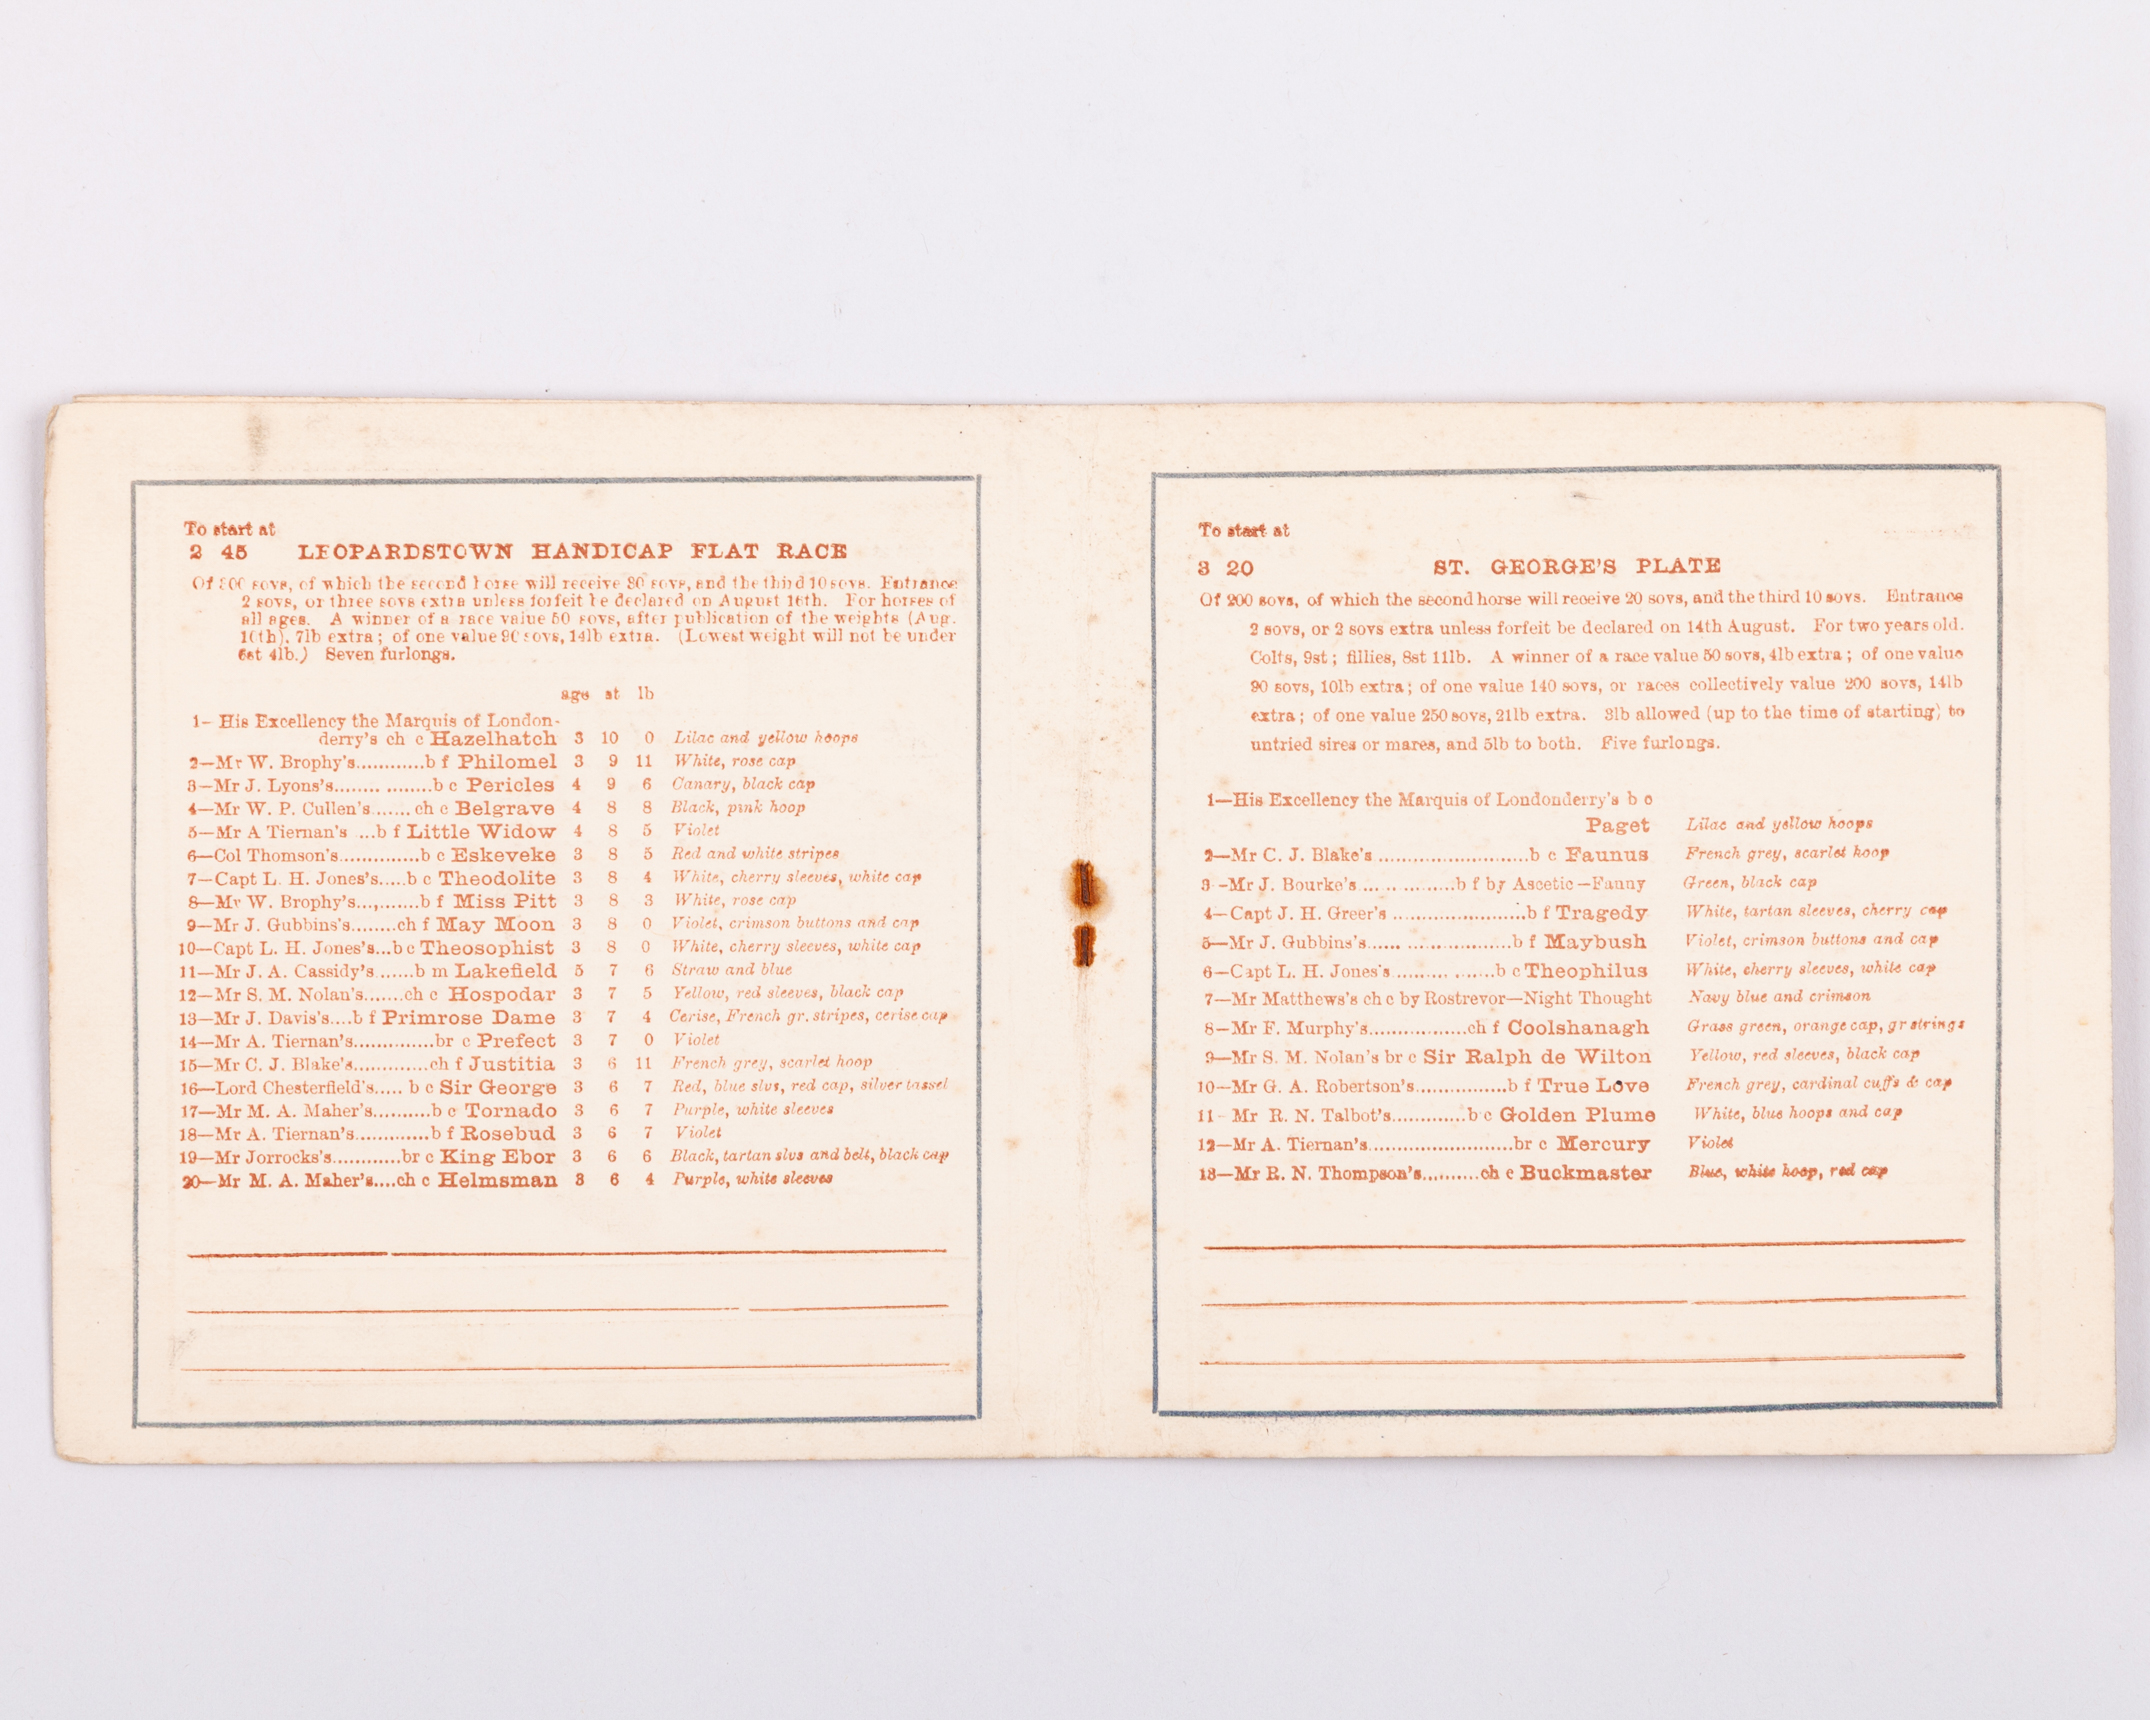 To start at
2 45 LEOPARDSTOWN HANDICAP FLAT RACE
Of 300 sovs, of which the second horse will receive 30 sovs, and the third 10 sovs. Entrance
2 sovs, or three sovs extra unless forfeit be declared on August 16th. For horses of
all ages. A winner of a race value 50 sovs, after publication of the weights (Aug.
10th), 7lb extra; of one value 90 sovs, 14lb extra. (Lowest weight will not be under
6st 4lb.) Seven furlongs.
age st lb
1—His Excellency the Marquis of London-
derry's ch c Hazelhatch 3 10 0 Lilac and yellow hoops
2—Mr W. Brophy's............b f Philomel 3 9 11 White, rose cap
3—Mr J. Lyons's........ ........b c Pericles 4 9 6 Canary, black cap
4—Mr W. P. Cullen's.......ch c Belgrave 4 8 8 Black, pink hoop
5—Mr A Tiernan's ...b f Little Widow 4 8 5 Violet
6—Col Thomson's..............b c Eskeveke 3 8 5 Red and white stripes
7—Capt L. H. Jones's.....b c Theodolite 3 8 4 White, cherry sleeves, white cap
8—Mr W. Brophy's...,.......b f Miss Pitt 3 8 3 White, rose cap
9—Mr J. Gubbins's........ch f May Moon 3 8 0 Violet, crimson buttons and cap
10—Capt L. H. Jones's...b c Theosophist 3 8 0 White, cherry sleeves, white cap
11—Mr J. A. Cassidy's.......b m Lakefield 5 7 6 Straw and blue
12—Mr S. M. Nolan's.......ch c Hospodar 3 7 5 Yellow, red sleeves, black cap
13—Mr J. Davis's....b f Primrose Dame 3 7 4 Cerise, French gr. stripes, cerise cap
14—Mr A. Tiernan's..............br c Prefect 3 7 0 Violet
15—Mr C. J. Blake's.............ch f Justitia 3 6 11 French grey, scarlet hoop
16—Lord Chesterfield's..... b c Sir George 3 6 7 Red, blue slvs, red cap, silver tassel
17—Mr M. A. Maher's..........b c Tornado 3 6 7 Purple, white sleeves
18—Mr A. Tiernan's.............b f Rosebud 3 6 7 Violet
19—Mr Jorrocks's............br c King Ebor 3 6 6 Black, tartan slvs and belt, black cap
20—Mr M. A. Maher's....ch c Helmsman 3 6 4 Purple, white sleeves
To start at
3 20 ST. GEORGE'S PLATE
Of 200 sovs, of which the second horse will receive 20 sovs, and the third 10 sovs. Entrance
2 sovs, or 2 sovs extra unless forfeit be declared on 14th August. For two years old.
Colts, 9st; fillies, 8st 11lb. A winner of a race value 50 sovs, 4lb extra; of one value
90 sovs, 10lb extra; of one value 140 sovs, or races collectively value 200 sovs, 14lb
extra; of one value 250 sovs, 21lb extra. 3lb allowed (up to the time of starting) to
untried sires or mares, and 5lb to both. Five furlongs.
1—His Excellency the Marquis of Londonderry's b c
Paget Lilac and yellow hoops
2—Mr C. J. Blake's ..........................b c Faunus French grey, scarlet hoop
3-Mr J. Bourke's... .. ............b f by Ascetic—Fanny Green, black cap
4—Capt J. H. Greer's .......................b f Tragedy White, tartan sleeves, cherry cap
5—Mr J. Gubbins's...... ..................b f Maybush Violet, crimson buttons and cap
6—Capt L. H. Jones's.......... .......b c Theophilus White, cherry sleeves, white cap
7—Mr Matthews's ch c by Rostrevor—Night Thought Navy blue and crimson
8—Mr F. Murphy's.................ch f Coolshanagh Grass green, orange cap, gr strings
9—Mr S. M. Nolan's br c Sir Ralph de Wilton Yellow, red sleeves, black cap
10—Mr G. A. Robertson's................b f True Love French grey, cardinal cuffs & cap
11-Mr R. N. Talbot's.............b c Golden Plume White, blue hoops and cap
12—Mr A. Tiernan's.........................br c Mercury Violet
13—Mr R. N. Thompson's..........ch c Buckmaster Blue, white hoop, red cap